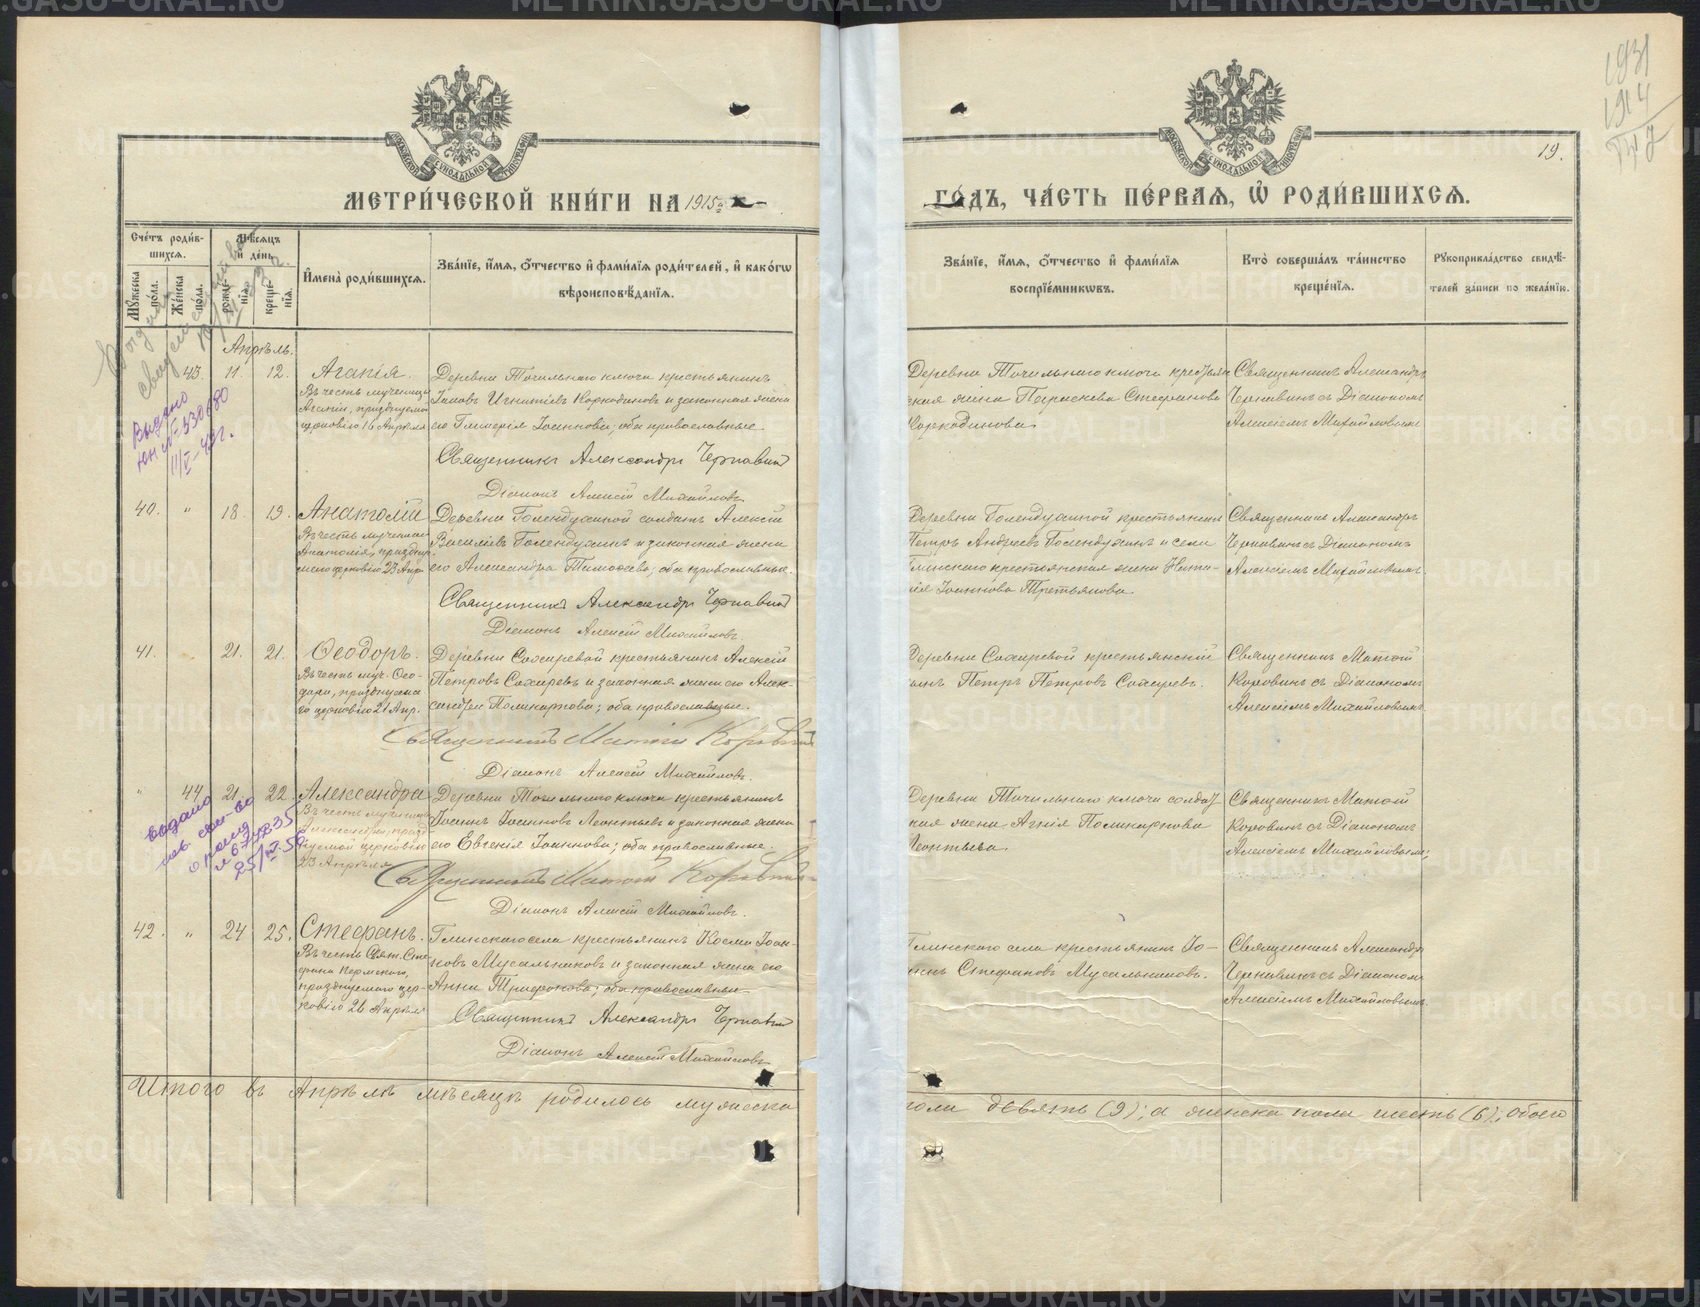 МЕТРИ́ЧЕСКОЙ КНИ́ГИ НА 1915 й
ГО́ДЪ, ЧА́СТЬ ПЕ́РВАѦ, Ѡ҆ РОДИ́ВШИХСѦ.
19.
1931
1914
Сче́тъ роди́в-
шихсѧ.
Мѹ́жеска по́ла.
Же́нска по́ла.
Мѣ́сѧцъ
и҆ де́нь
рожде́-
нїѧ.
креще́-
нїѧ.
И҆мена̀ роди́вшихсѧ.
Зва́нїе, и҆́мѧ, ѻ҆́тчество и҆ фами́лїѧ роди́телей, и҆ како́гѡ
вѣроисповѣ́данїѧ.
Зва́нїе, и҆́мѧ, ѻ҆́тчество и҆ фами́лїѧ
воспрїе́мникѡвъ.
Кто̀ соверша́лъ та́инство
креще́нїѧ.
Рѹкоприкла́дство свидѣ́-
телей за́писи по жела́нїю.
Апрѣль.
43. 11. 12.
Агапія.
Въ честь мученицы
Агапіи, празднуемой
церковію 16 Апрѣля
Деревни Точильнаго ключа крестьянинъ
Іаковъ Игнатіевъ Коркодиновъ и законная жена
его Гликерія Іоаннова; оба православные.
Священникъ Александръ Чернавинъ
Діаконъ Алексій Михайловъ
Деревни Точильнаго ключа крестьян-
ская жена Параскева Стефанова
Коркодинова.
Священникъ Александръ
Чернавинъ съ Діакономъ
Алексіемъ Михайловымъ
Выдано
ЮН № 530680
11/V-42г.
40. " 18. 19.
Анатолій
Въ честь мученика
Анатолія, праздну-
емаго церковію 23 Апр.
Деревни Голендухиной солдатъ Алексій
Василіевъ Голендухинъ и законная жена
его Александра Тимофеева; оба православные.
Священникъ Александръ Чернавинъ
Діаконъ Алексій Михайловъ.
Деревни Голендухиной крестьянинъ
Петръ Андреевъ Голендухинъ и села
Глинскаго крестьянская жена
Іоаннова Третьякова.
Священникъ Александръ
Чернавинъ съ Діакономъ
Алексіемъ Михайловымъ.
41. 21. 21.
Ѳеодоръ.
Въ честь муч. Ѳео-
дора, празднуема-
го церковію 21 Апр.
Деревни Сохаревой крестьянинъ Алексій
Петровъ Сохаревъ и законная жена его Алек-
сандра Поликарпова; оба православные.
Священникъ Матѳій Коровинъ
Діаконъ Алексій Михайловъ.
Деревни Сохаревой крестьянскій
сынъ Петръ Петровъ Сохаревъ.
Священникъ Матѳій
Коровинъ съ Діакономъ
Алексіемъ Михайловымъ
" 44 21. 22.
Александра
Въ честь мученицы
Александры, празд-
нуемой церковію
23 Апрѣля
Деревни Точильнаго ключа крестьянинъ
Іоаннъ Іоанновъ Леонтьевъ и законная жена
его Евгенія Іоаннова; оба православные.
Священникъ Матѳій Коровинъ
Діаконъ Алексій Михайловъ.
Деревни Точильнаго ключа солдат-
ская жена Агнія Поликарпова
Леонтьева.
Священникъ Матѳій
Коровинъ съ Діакономъ
Алексіемъ Михайловымъ;
выдано
пов. свид-во
о рожд
25/IV 56
42. " 24 25.
Стефанъ.
Въ честь Свят. Сте-
фана Пермскаго,
празднуемаго цер-
ковію 26 Апрѣля
Глинскаго села крестьянинъ Косма Іоан-
новъ Мусальниковъ и законная жена его
Анна Трифонова; оба православные.
Священникъ Александръ Чернавинъ
Діаконъ Алексій Михайловъ
Глинскаго села крестьянинъ Іо-
аннъ Стефановъ Мусальниковъ.
Священникъ Александръ
Чернавинъ съ Діакономъ
Алексіемъ Михайловымъ.
Итого въ Апрѣлѣ мѣсяцѣ родилось мужеска
пола девять (9); а женска пола шесть (6); обоего
METRIKI.GASO-URAL.RU